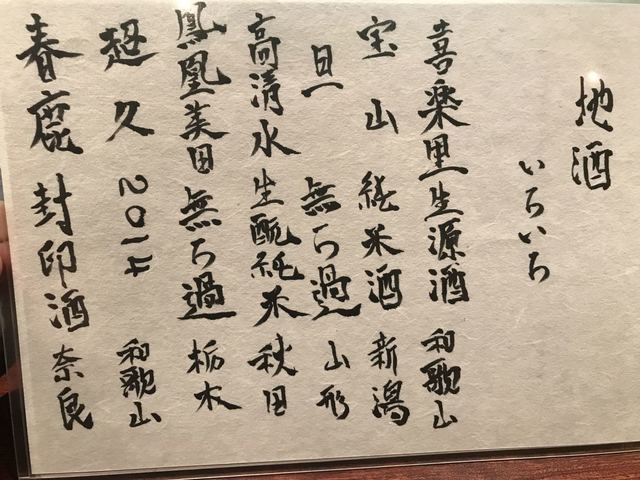 地酒
いろいろ
喜楽里生源酒 和歌山
宝山 純米酒 新潟
旦 無ろ過 山形
高清水 生酛純米 秋田
鳳凰美田 無ろ過 栃木
超久 2014 和歌山
春鹿 封印酒 奈良